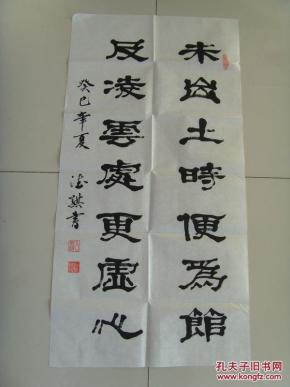 未出土時便為節
及凌雲處更虛心
癸巳年夏
德騏書
孔夫子旧书网